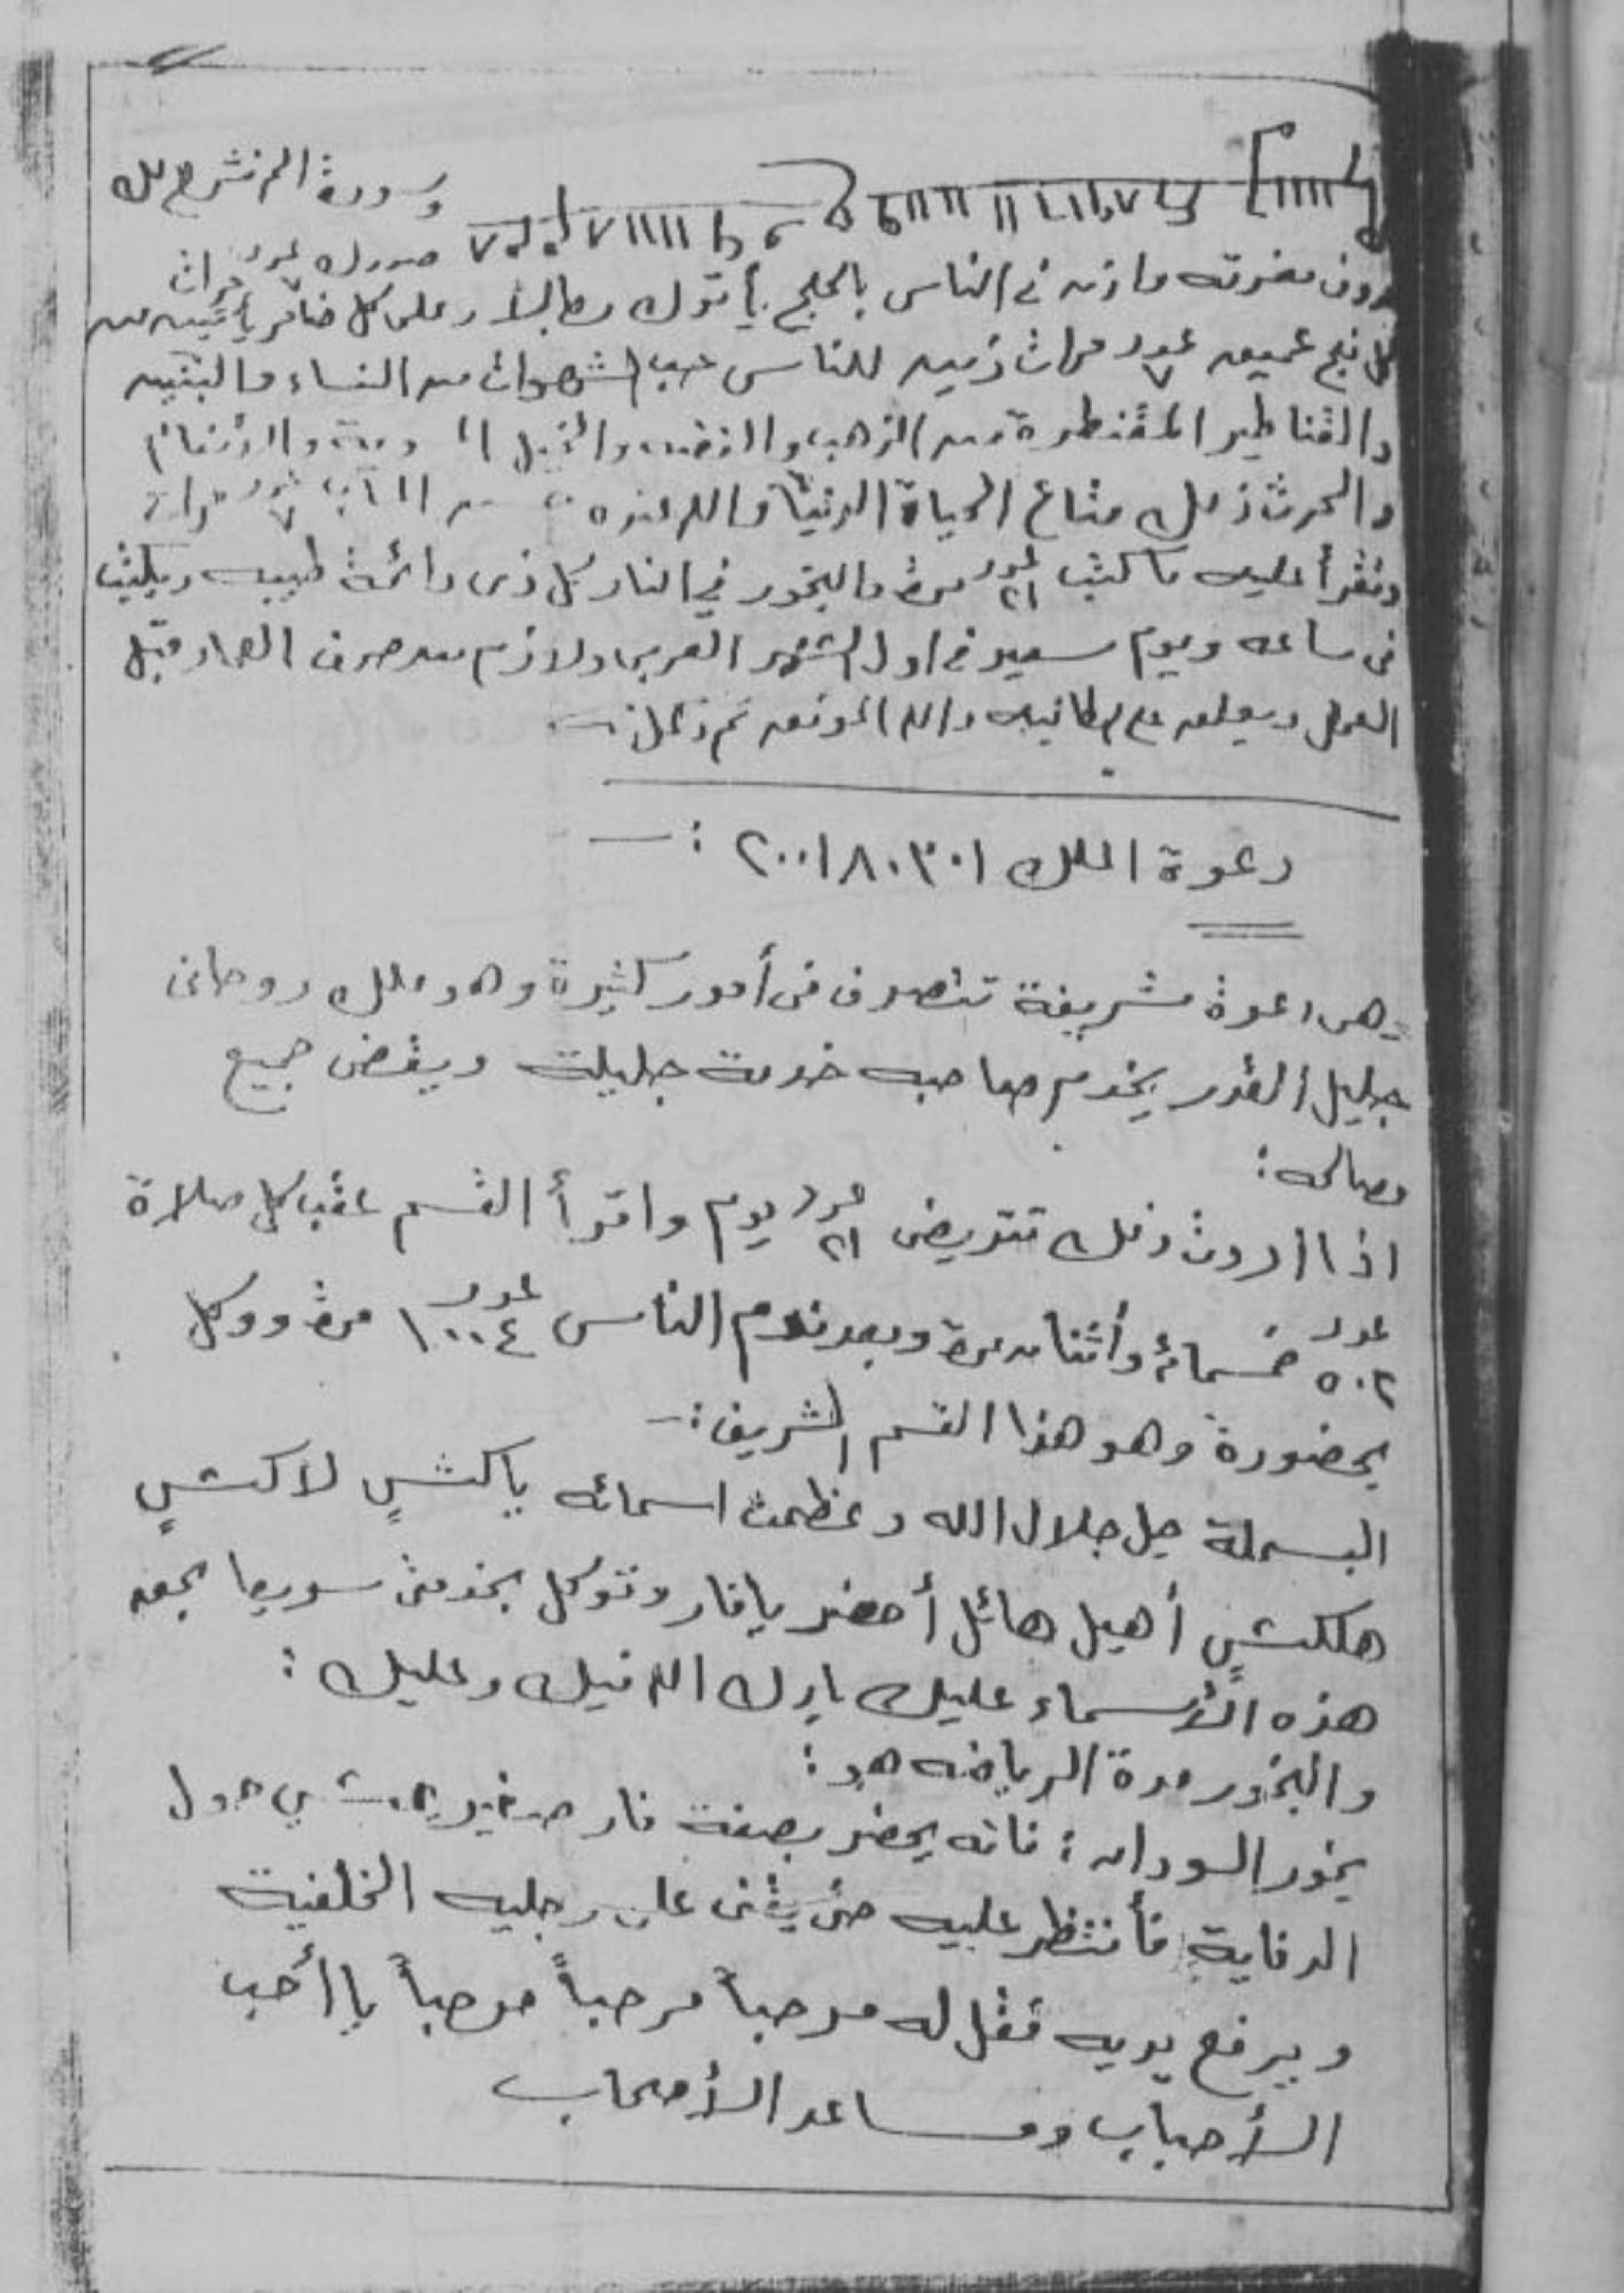 وسورة الم نشرح لك
صدرك عدد ٧ مرات
وأذن في الناس بالحج يأتوك رجالا وعلى كل ضامر يأتين من
كل فج عميق عدد ٧ مرات زين للناس حب الشهوات من النساء والبنين
والقناطير المقنطرة من الذهب والفضه والخيل والأنعام
والحرث ذلك متاع الحياة الدنيا والله عنده المآب عدد ٧ مرات
وتقرأ عليه ما كتب عدد ٢١ مرة والبخور في النار كل ذى رائحة طيبه ويكتب
فى ساعه ويوم سعيد في اول الشهر العربى ولازم من صرف العمار قبل
العمل ويعلق والله الموفق
دعوة الملك ٢٠٠١٨٠٣٠١ :—
هى دعوة شريفة تتصرف فى أمور كثيرة وهو ملك روحانى
جليل القدر يخدم صاحبه خدمة جليلة ويقضى جميع
مصالحه :
اذا اردت ذلك تتريض عدد ٢١ يوم واقرأ القسم عقب كل صلاة
عدد ٥٠٢ خمسمائة وأثنان مرة وبعد نوم الناس عدد ١٠٠٤ مرة ووكل
بحضورة وهو هذا القسم الشريف :—
البسملة جل جلال الله وعظمت اسمائه ياكشٍ لاكشٍ
هلكشٍ أهيل هائل أحضر يا فار وتوكل بخدمتى سريعا بحق
هذه الأسماء عليك بارك الله فيك وعليك :
والبخور مدة الرياضه هو :
بخور السودان : فانه يحضر بصفة فار صغير يمشي حول
الدفاية فأنتظر عليه حتى يقف على رجليه الخلفية
ويرفع يديه فقل له مرحباً مرحباً مرحباً يا أحب
الأحباب ومساعد الأصحاب